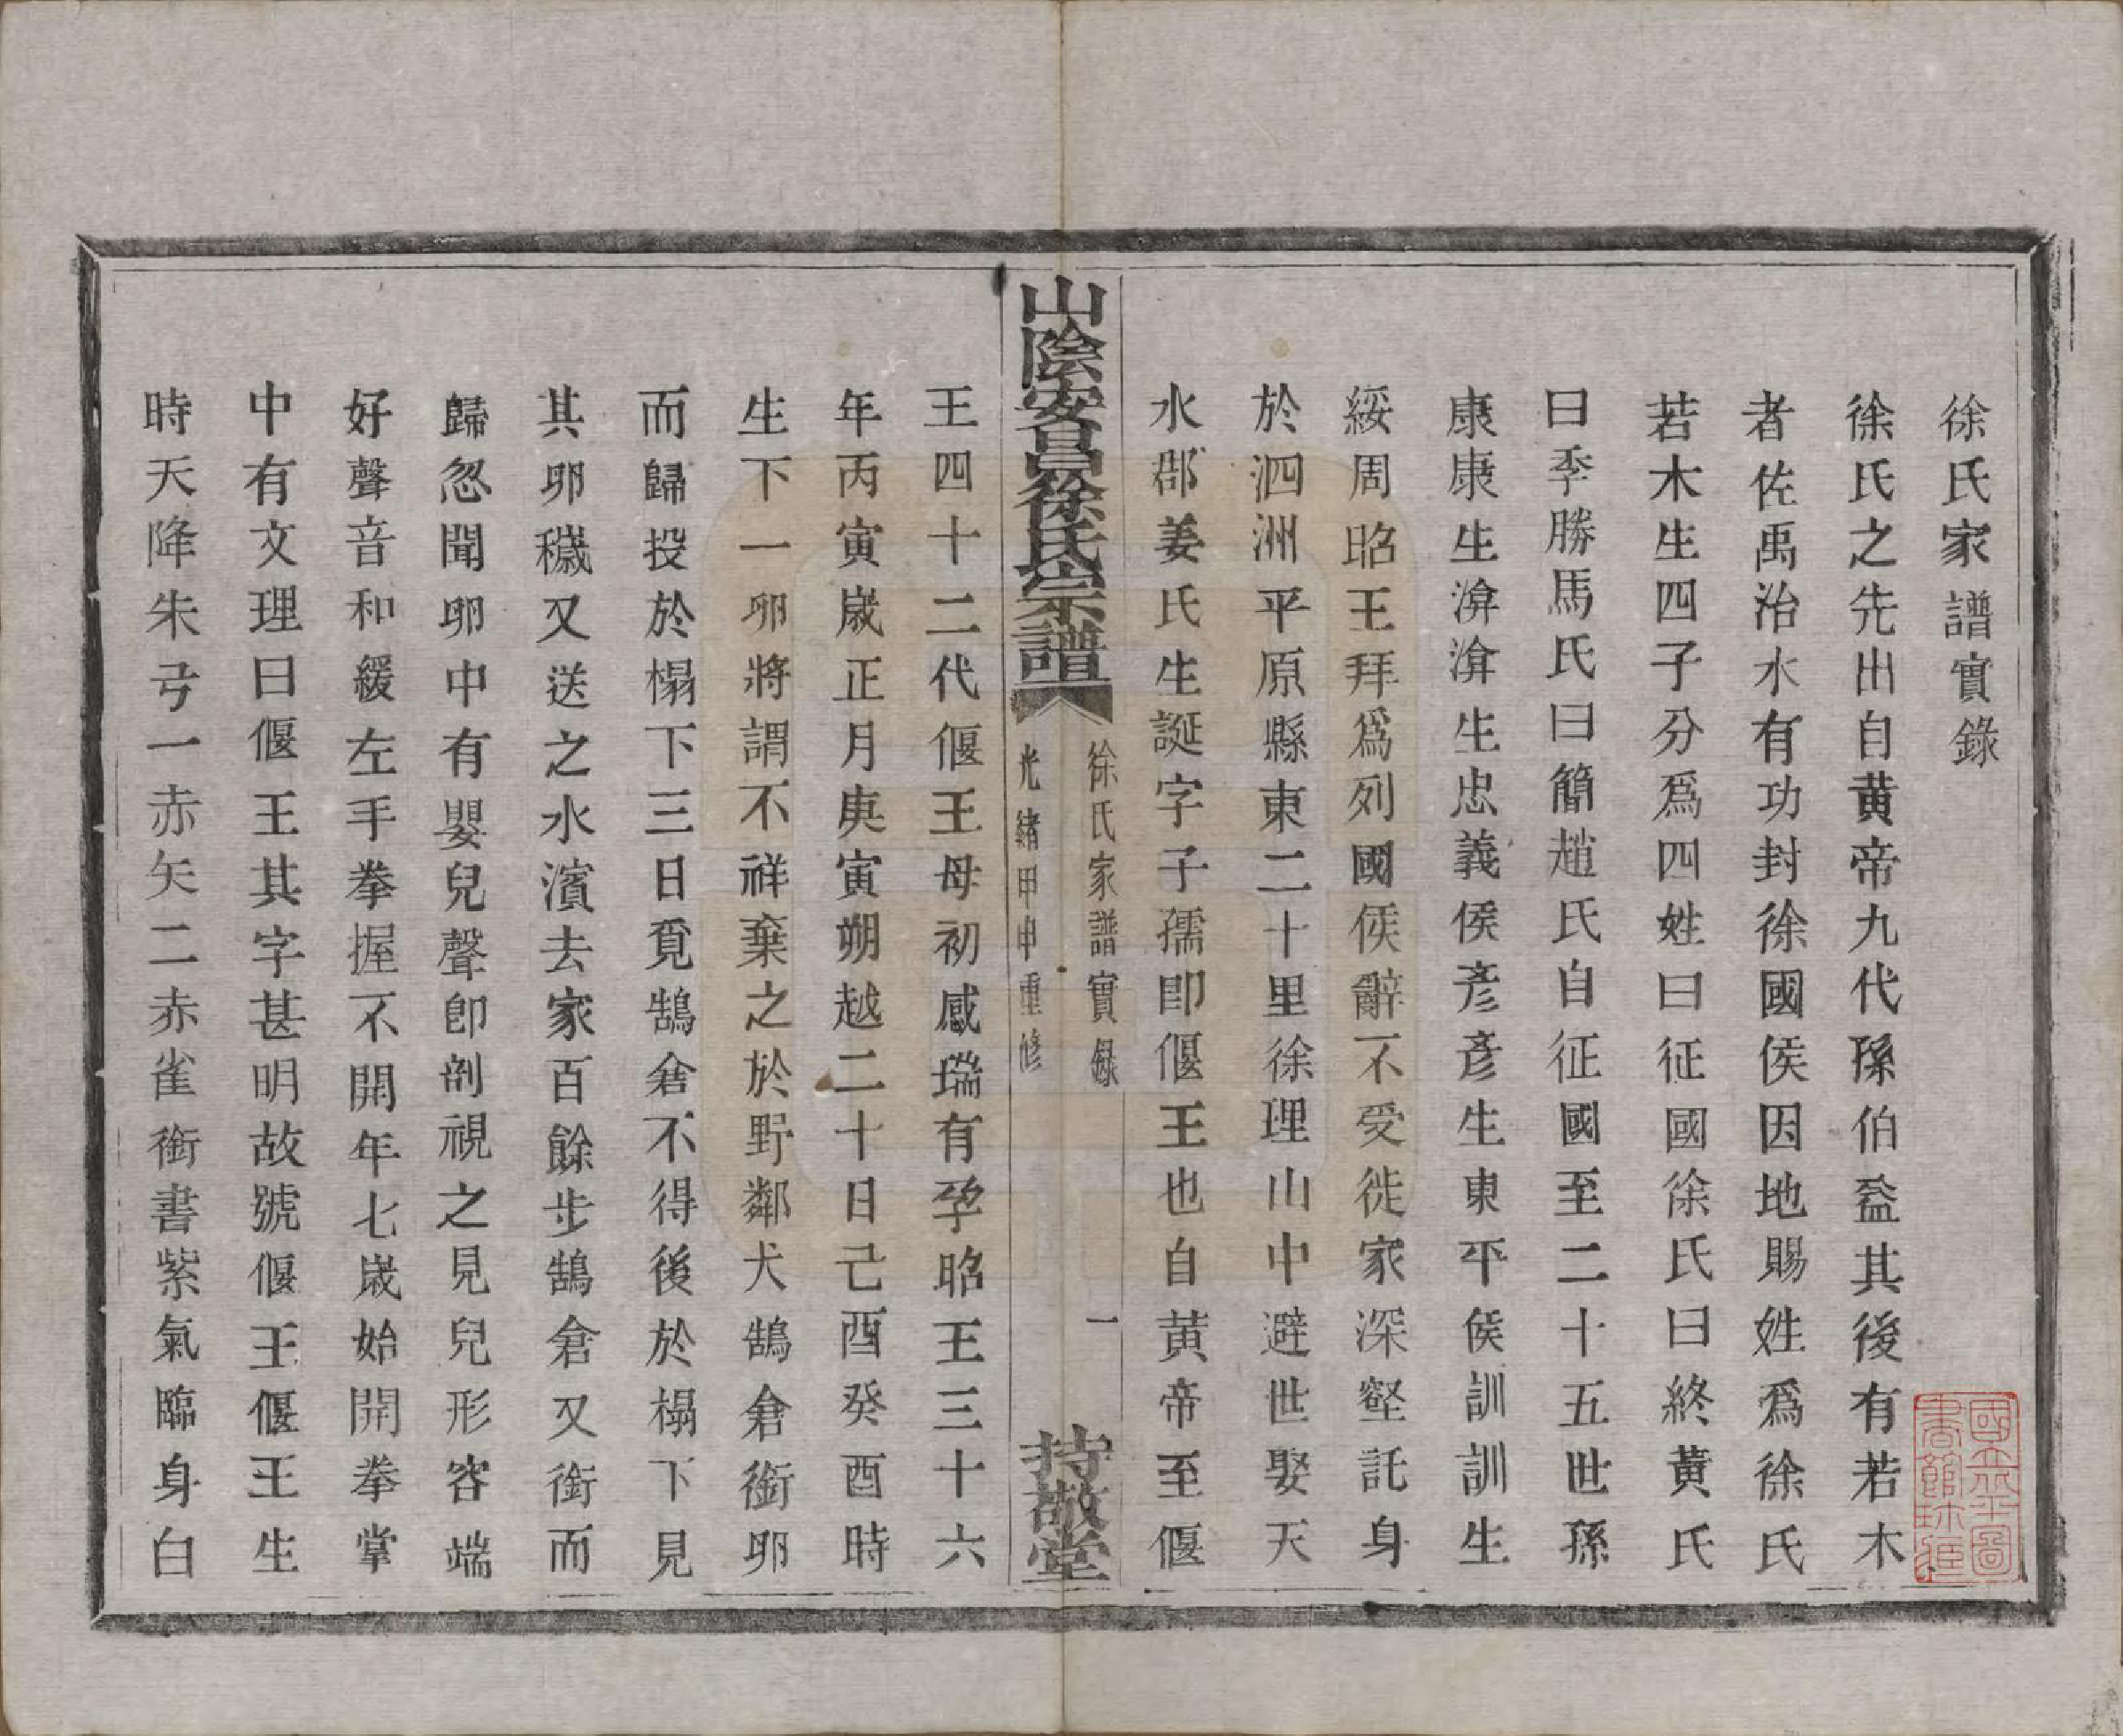 徐氏家譜實錄
徐氏之先出自黃帝九代孫伯益其後有若木
者佐禹治水有功封徐國侯因地賜姓爲徐氏
若木生四子分爲四姓曰征國徐氏曰終黃氏
曰季勝馬氏曰簡趙氏自征國至二十五世孫
康康生渰渰生忠義侯彥彥生東平侯訓訓生
綏周昭王拜爲列國侯辭不受徙家深壑託身
於泗洲平原縣東二十里徐理山中避世娶天
水郡姜氏生誕字子孺即偃王也自黃帝至偃
山陰安昌徐氏宗譜
徐氏家譜實錄
一
光緒甲申重修
持敬堂
王四十二代偃王母初感瑞有孕昭王三十六
年丙寅歲正月庚寅朔越二十日己酉癸酉時
生下一卵將謂不祥棄之於野鄰犬鵠倉銜卵
而歸投於榻下三日覓鵠倉不得後於榻下見
其卵穢又送之水濱去家百餘步鵠倉又銜而
歸忽聞卵中有嬰兒聲卽剖視之見兒形容端
好聲音和緩左手拳握不開年七歲始開拳掌
中有文理曰偃王其字甚明故號偃王偃王生
時天降朱弓一赤矢二赤雀銜書紫氣臨身白
國立北平圖書館珍藏